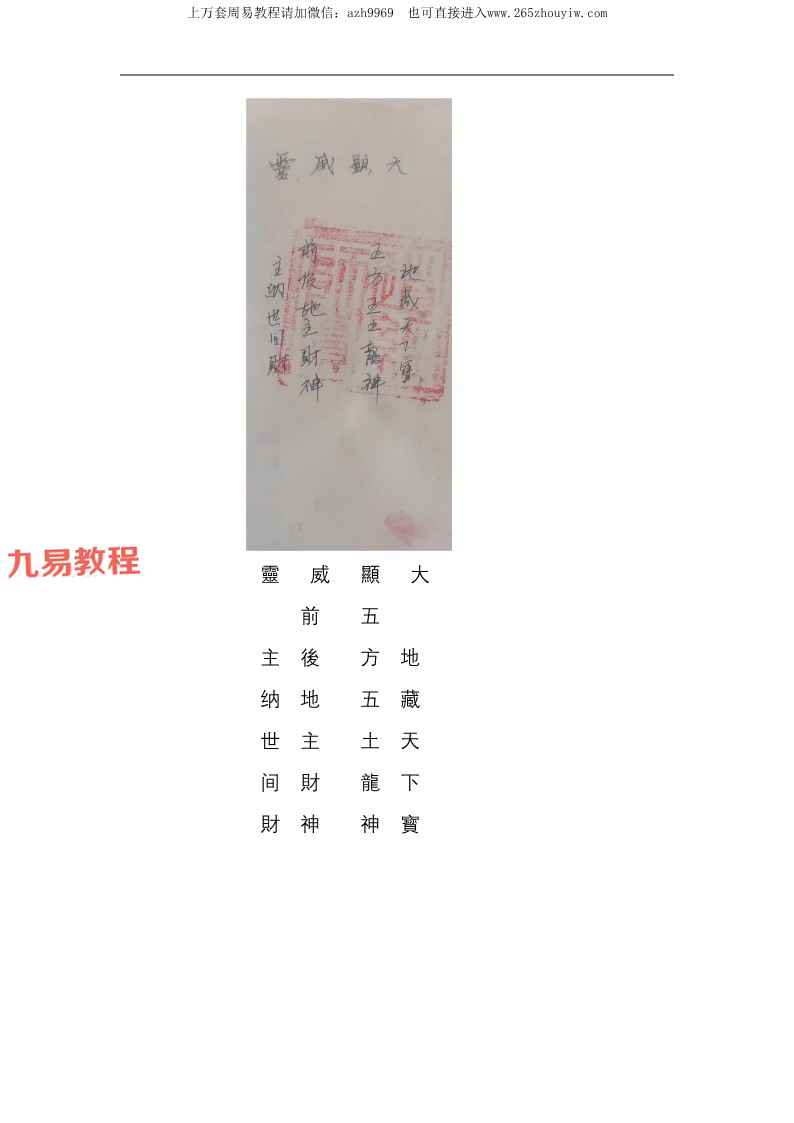 上万套周易教程请加微信：azh9969 也可直接进入www.265zhouyiw.com
大顯威靈
地藏天下寳
五方五土龍神
前後地主財神
主納世间財
九易教程
大顯威靈
地藏天下寳
五方五土龍神
前後地主財神
主纳世间財